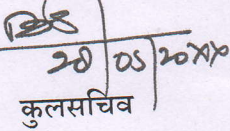 20/05/20XX
कुलसचिव